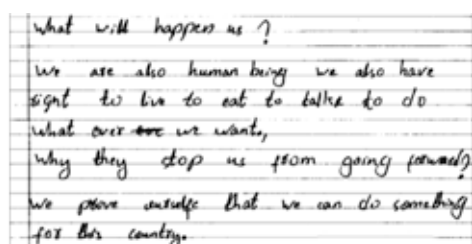 what will happen us ?
We are also human being we also have
right to live to eat to talke to do
what ever we want.,
Why they stop us from going forward?
We prove ourselfe that we can do something
for this country.